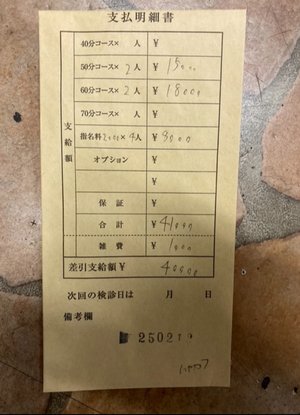 支払明細書
支給額
40分コース× 人 ¥
50分コース× 2 人 ¥ 15000
60分コース× 2 人 ¥ 18000
70分コース× 人 ¥
指名料2000×4人 ¥ 8000
オプション ¥
¥
保証 ¥
合計 ¥ 41000
雑費 ¥ 1000
差引支給額 ¥ 40000
次回の検診日は 月 日
備考欄
250219